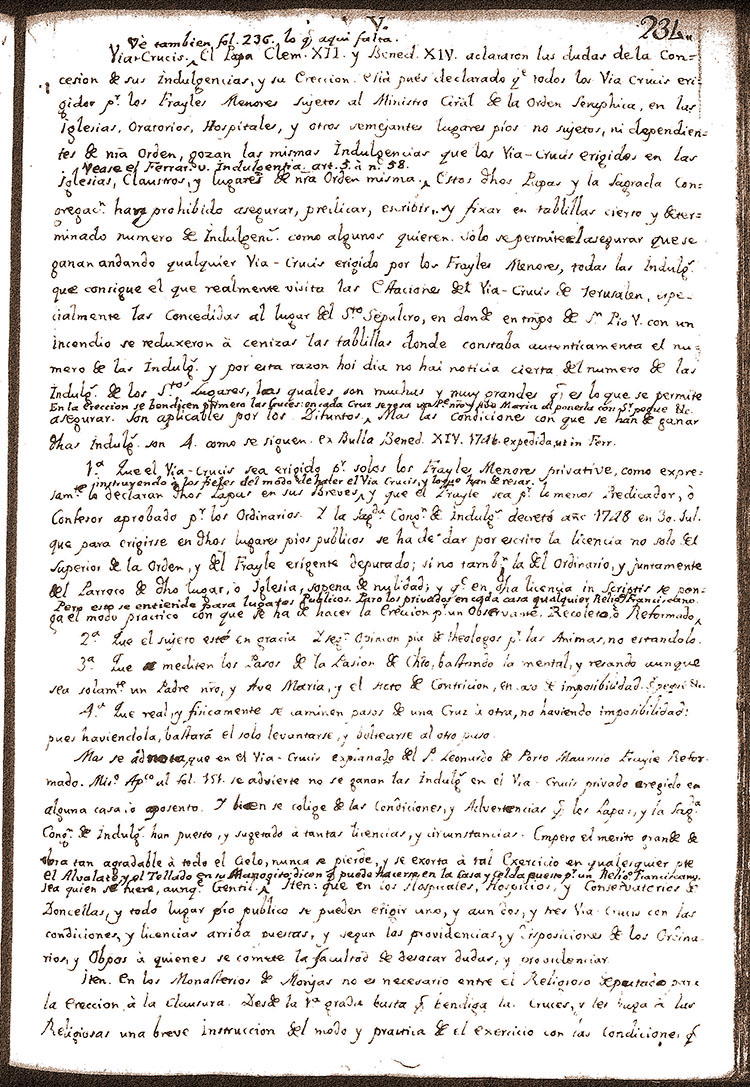 V.
234.
Vè tambien fol. 236. lo q̃ aqui falta.
Via-Crucis. El Papa Clem. XII. y Bened. XIV. aclararon las dudas de la Con=
cesion de sus Indulgencias, y su Ereccion. està pués declarado qᵉ todos los Via Crucis eri=
gidos pʳ. los Frayles Menores sujetos al Ministro Gr̃al de la Orden Seraphica, en las
Iglesias, Oratorios, Hospitales, y otros semejantes lugares pios no sujetos, ni dependien=
tes de nr̃a Orden, gozan las mismas Indulgencias que los Via-Crucis erigidos en las
Vease el Ferrar. v. Indulgentia. art. 5. à n. 58.
Iglesias, Claustros, y lugares de nr̃a Orden misma. Estos dhos Papas y la Sagrada Con=
gregacⁿ. han prohibido asegurar, predicar, escribir, y fixar en tablillas cierto y deter=
minado numero de Indulgenc̃. como algunos quieren. Solo se permite el asegurar que se
ganan andando qualquier Via-Crucis erigido por los Frayles Menores, todas las Indulg̃.
que consigue el que realmente visita las Estaciones del Via-Crucis de Jerusalen, espe=
cialmente las Concedidas al lugar del Sᵗᵒ Sepulcro, en donde en tmpo de Sⁿ Pio V. con un
incendio se reduxeron à cenizas las tablillas donde constaba autenticamente el nu=
mero de las Indulg̃. y por esta razon hoi dia no hai noticia cierta del numero de las
Indulg̃. de los Sᵗᵒˢ Lugares, las quales son muchas y muy grandes q̃ es lo que se permite
En la ereccion se bendicen primero las Cruces: en cada Cruz se reza un Pᵉ. nro y Ave Maria al ponerla con
asegurar. Son aplicables por los Difuntos. Mas las Condiciones con que se han de ganar
dhas Indulg̃. son 4. como se siguen. ex Bulla Bened. XIV. 1746. expedida, ut in Ferr.
1.ª Que el Via-Crucis sea erigido pʳ. solos los Frayles Menores privative, como expre=
instruyendo à los fieles del modo de hacer el Via Crucis, y lo que han de rezar.
samᵗᵉ lo declaran dhos Papas en sus Breves, y que el Frayle sea pʳ lo menos Predicador, ò
Confesor aprobado pʳ. los Ordinarios. Y la Sagᵈᵃ Congⁿ. de Indulg̃. decretó año 1748 en 30. Jul.
que para erigirse en dhos lugares pios publicos se ha de dar por escrito la licencia no solo del
Superior de la Orden, y del Frayle erigente deputado; si no tambⁿ la del Ordinario, y juntamente
del Parroco de dho lugar, ò Iglesia, sopena de nulidad; y qᵉ en dha licencia in Scriptis se pon=
Pero esto se entiende para lugares Publicos. Paro los privados en cada casa qualquier Religᵒ Franciscano.
ga el modo practico con que se ha de hacer la Ereccion pʳ un Observante, Recoleto, ò Reformado.
2.ª Que el sujeto esté en gracia Y segⁿ Opinion pia de theologos pʳ. las Animas, no estandolo.
3.ª Que mediten los Pasos de la Pasion de Chr̃to, bastando la mental, y rezando aunque
sea solamᵗᵉ un Padre nr̃o, y Ave Maria, y el Acto de Contricion, en caso de imposibilidad.
4.ª Que real, y fisicamente se caminen pasos de una Cruz à otra, no haviendo imposibilidad:
pues haviendola, bastará el solo levantarse, y bolvearse al otro paso.
Mas se adnota, que en el Via-Crucis explanado del Pᵉ. Leonardo de Porto Mauricio Frayle Refor=
mado. Misᵒ. Apᶜᵒ al fol. 151. se advierte no se ganan las Indulg̃ en el Via-Crucis privado eregido en
alguna casa, ò aposento. Y bien se colige de las Condiciones, y Advertencias q̃ los Papas, y la Sagᵈᵃ
Congⁿ. de Indulg̃. han puesto, y sugetado à tantas licencias, y circunstancias. Empero el merito grande de
obra tan agradable à todo el Cielo, nunca se pierde, y se exorta à tal Exercicio en qualesquier pte
el Alvalate, y el Tollado en su Manogito, dicen q̃ puede hacerse en la Casa y Celda puesto pʳ. un Religᵒ. Franciscanᵒ.
sea quien se fuere, aunqᵉ Gentil. Iten: que en los Hospitales, Hospicios, y Conservatorios de
Doncellas, y todo lugar pio publico se pueden erigir uno, y aun dos, y tres Via Crucis con las
condiciones, y licencias arriba puestas, y segun las providencias, y disposiciones de los Ordina=
rios, y Obpos à quienes se comete la facultad de desatar dudas, y providenciar.
Iten. En los Monasterios de Monjas no es necesario entre el Religioso deputado para
la Ereccion à la Clausura. Desde la grada basta q̃ bendiga las Cruces, y les haga à las
Religiosas una breve Instruccion del modo y practica de el exercicio con las Condiciones q̃